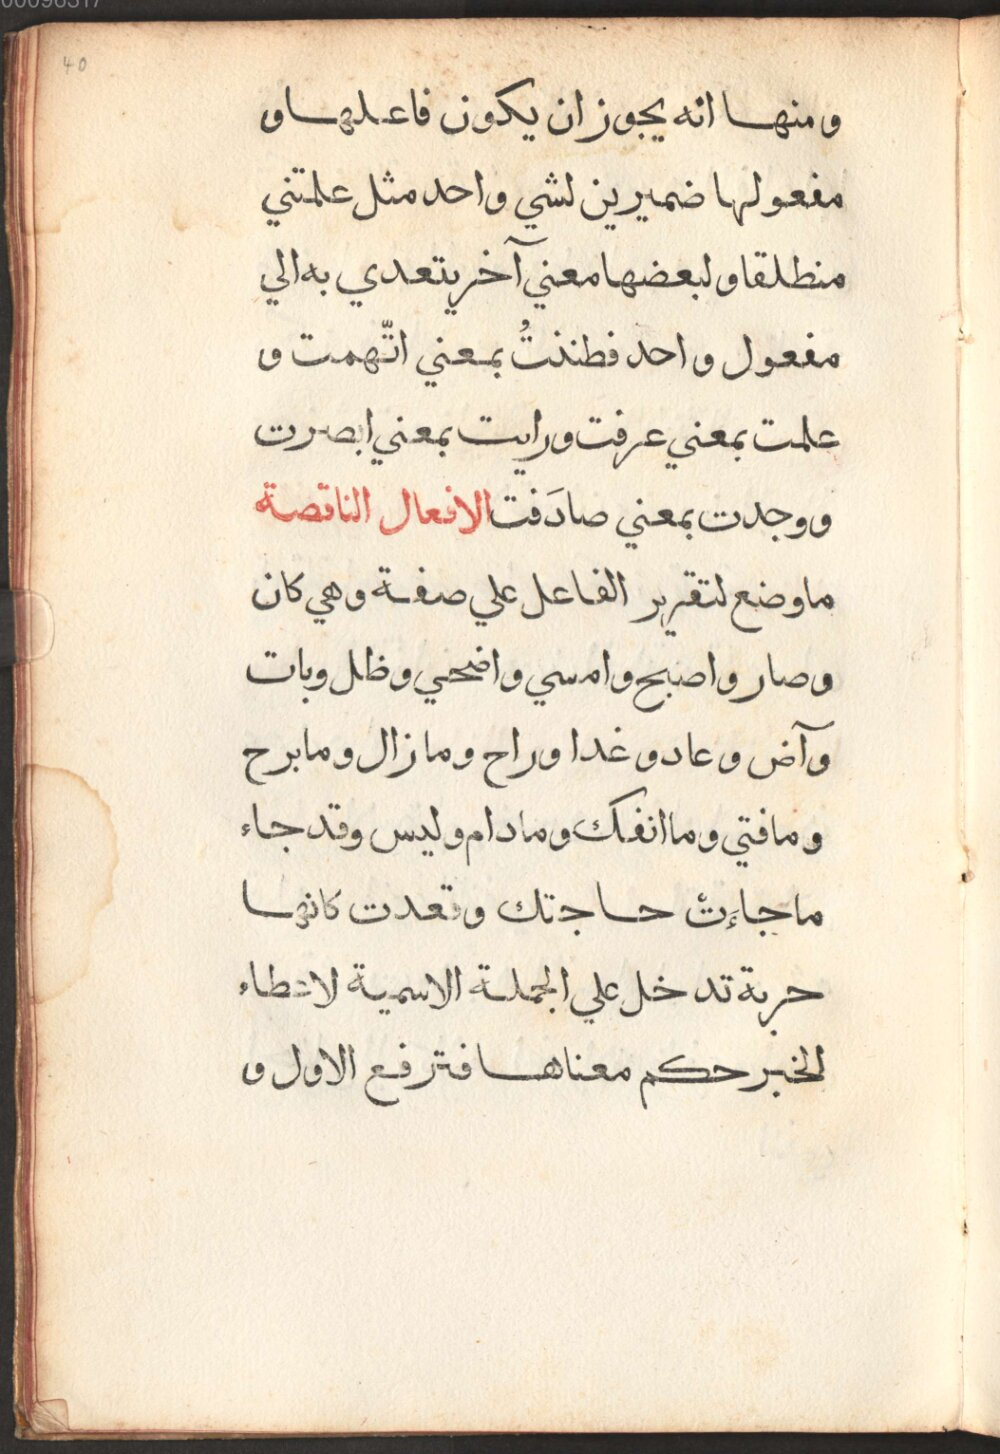 40
ومنها انه يجوز ان يكون فاعلها و
مفعولها ضميرين لشي واحد مثل علمتني
منطلقا ولبعضها معني آخر يتعدي به الي
مفعول واحد فظننتُ بمعني اتّهمت و
علمت بمعني عرفت ورايت بمعني ابصرت
ووجدت بمعني صادَفت الافعال الناقصة
ما وضع لتقرير الفاعل علي صفة وهي كان
وصار واصبح وامسي واضحي وظل وبات
وآض وعاد وغدا وراح وما زال وما برح
وما فتي وما انفك وما دام وليس وقد جاء
ما جاءت حاجتك وقعدت كانها
حربة تدخل علي الجملة الاسمية لاعطاء
الخبر حكم معناها فترفع الاول و